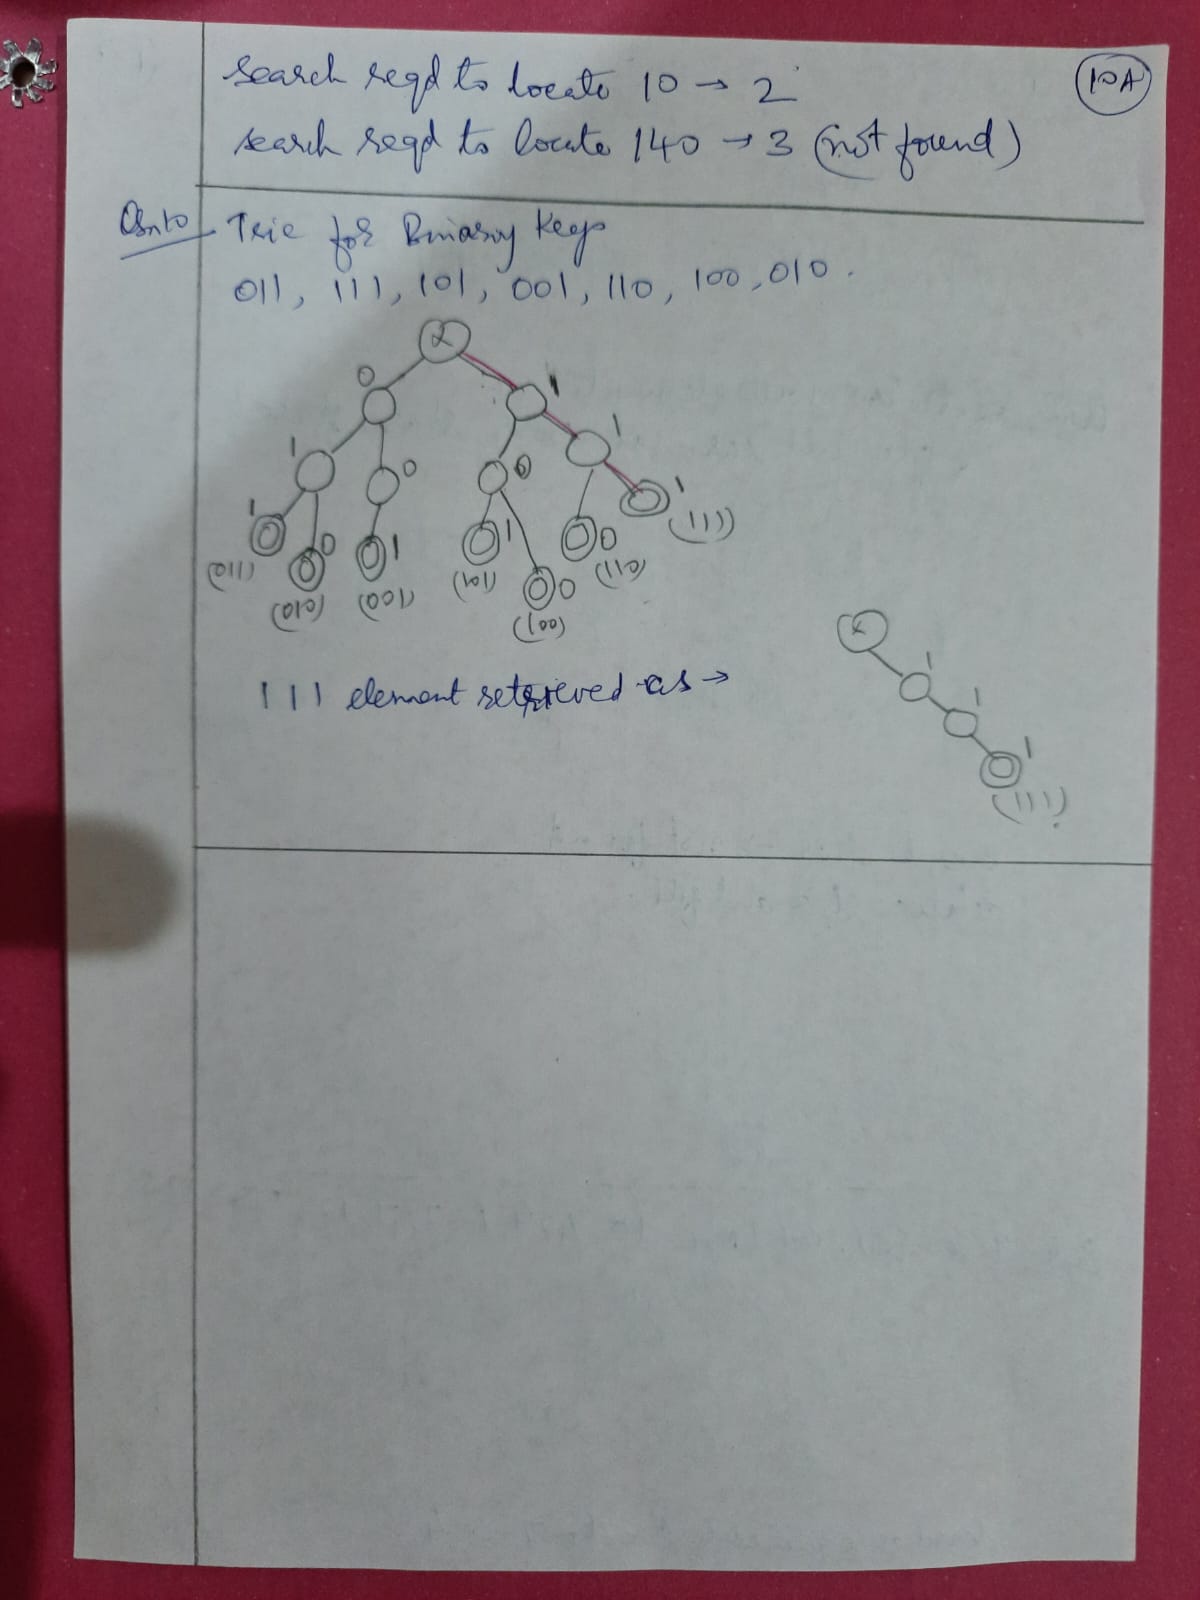 10A
search reqd to locate 10 → 2
search reqd to locate 140 → 3 (not found)
Qsn10
Trie for Binary Keys
011, 111, 101, 001, 110, 100, 010.
0 1
1 0 0 1
1 0 1 1 0 0 1
(011) (010) (001) (101) (100) (110) (111)
111 element retrieved as →
1
1
1
(111)